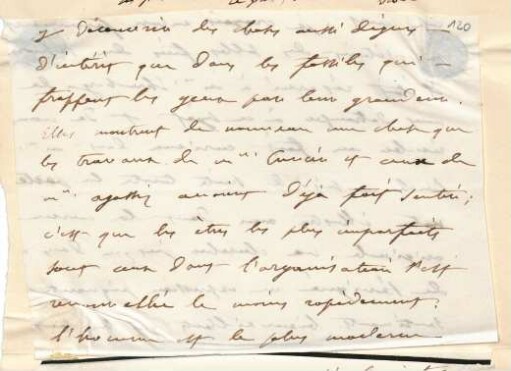 y découvrir des choses aussi dignes
120
d'intérêt que dans les fossiles qui
frappent les yeux par leur grandeur.
Elles montrent de nouveau une chose que
les travaux de Mr. Cuvier et ceux de
Mr. agassiz avaient déjà fait sentir;
c'est que les êtres les plus imparfaits
sont ceux dont l'organisation s'est
renouvellée le moins rapidement.
l'homme est le plus moderne